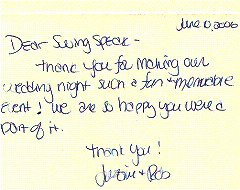 June 10, 2006
Dear Swing Speak -
Thank you for making our
wedding night such a fun + memorable
event! We are so happy you were a
part of it.
Thank you!
+ Rob